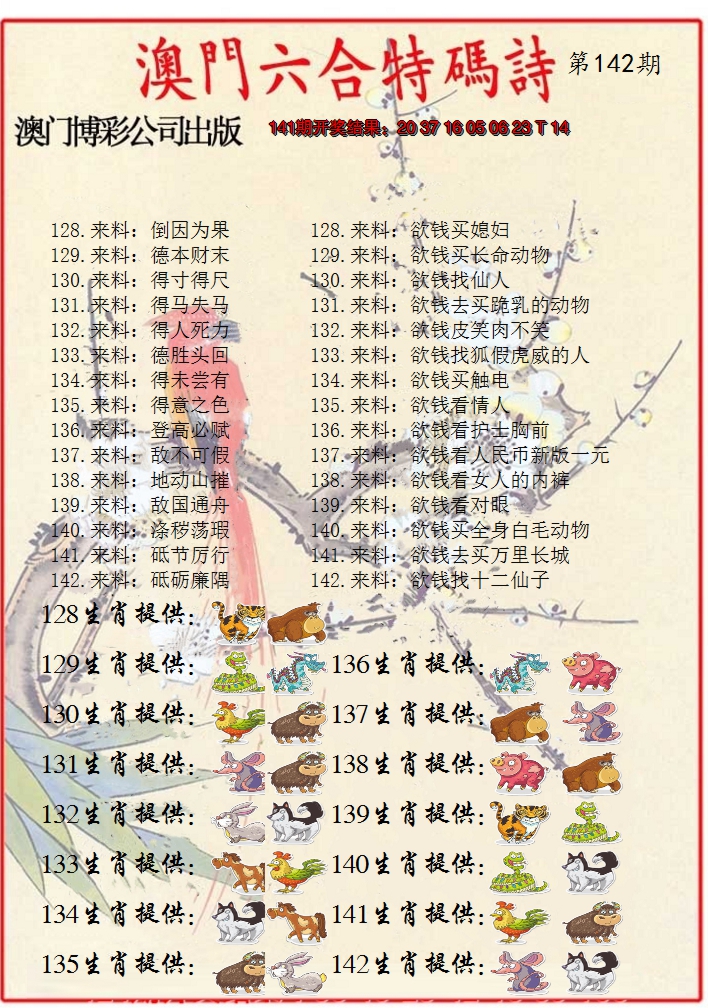 澳門六合特碼詩 第142期
澳门博彩公司出版 141期开奖结果：20 37 16 05 06 23 T 14
128.来料：倒因为果 128.来料：欲钱买媳妇
129.来料：德本财末 129.来料：欲钱买长命动物
130.来料：得寸得尺 130.来料：欲钱找仙人
131.来料：得马失马 131.来料：欲钱去买跪乳的动物
132.来料：得人死力 132.来料：欲钱皮笑肉不笑
133.来料：德胜头回 133.来料：欲钱找狐假虎威的人
134.来料：得未尝有 134.来料：欲钱买触电
135.来料：得意之色 135.来料：欲钱看情人
136.来料：登高必赋 136.来料：欲钱看护士胸前
137.来料：敌不可假 137.来料：欲钱看人民币新版一元
138.来料：地动山摧 138.来料：欲钱看女人的内裤
139.来料：敌国通舟 139.来料：欲钱看对眼
140.来料：涤秽荡瑕 140.来料：欲钱买全身白毛动物
141.来料：砥节厉行 141.来料：欲钱去买万里长城
142.来料：砥砺廉隅 142.来料：欲钱找十二仙子
128生肖提供：
129生肖提供： 136生肖提供：
130生肖提供： 137生肖提供：
131生肖提供： 138生肖提供：
132生肖提供： 139生肖提供：
133生肖提供： 140生肖提供：
134生肖提供： 141生肖提供：
135生肖提供： 142生肖提供：